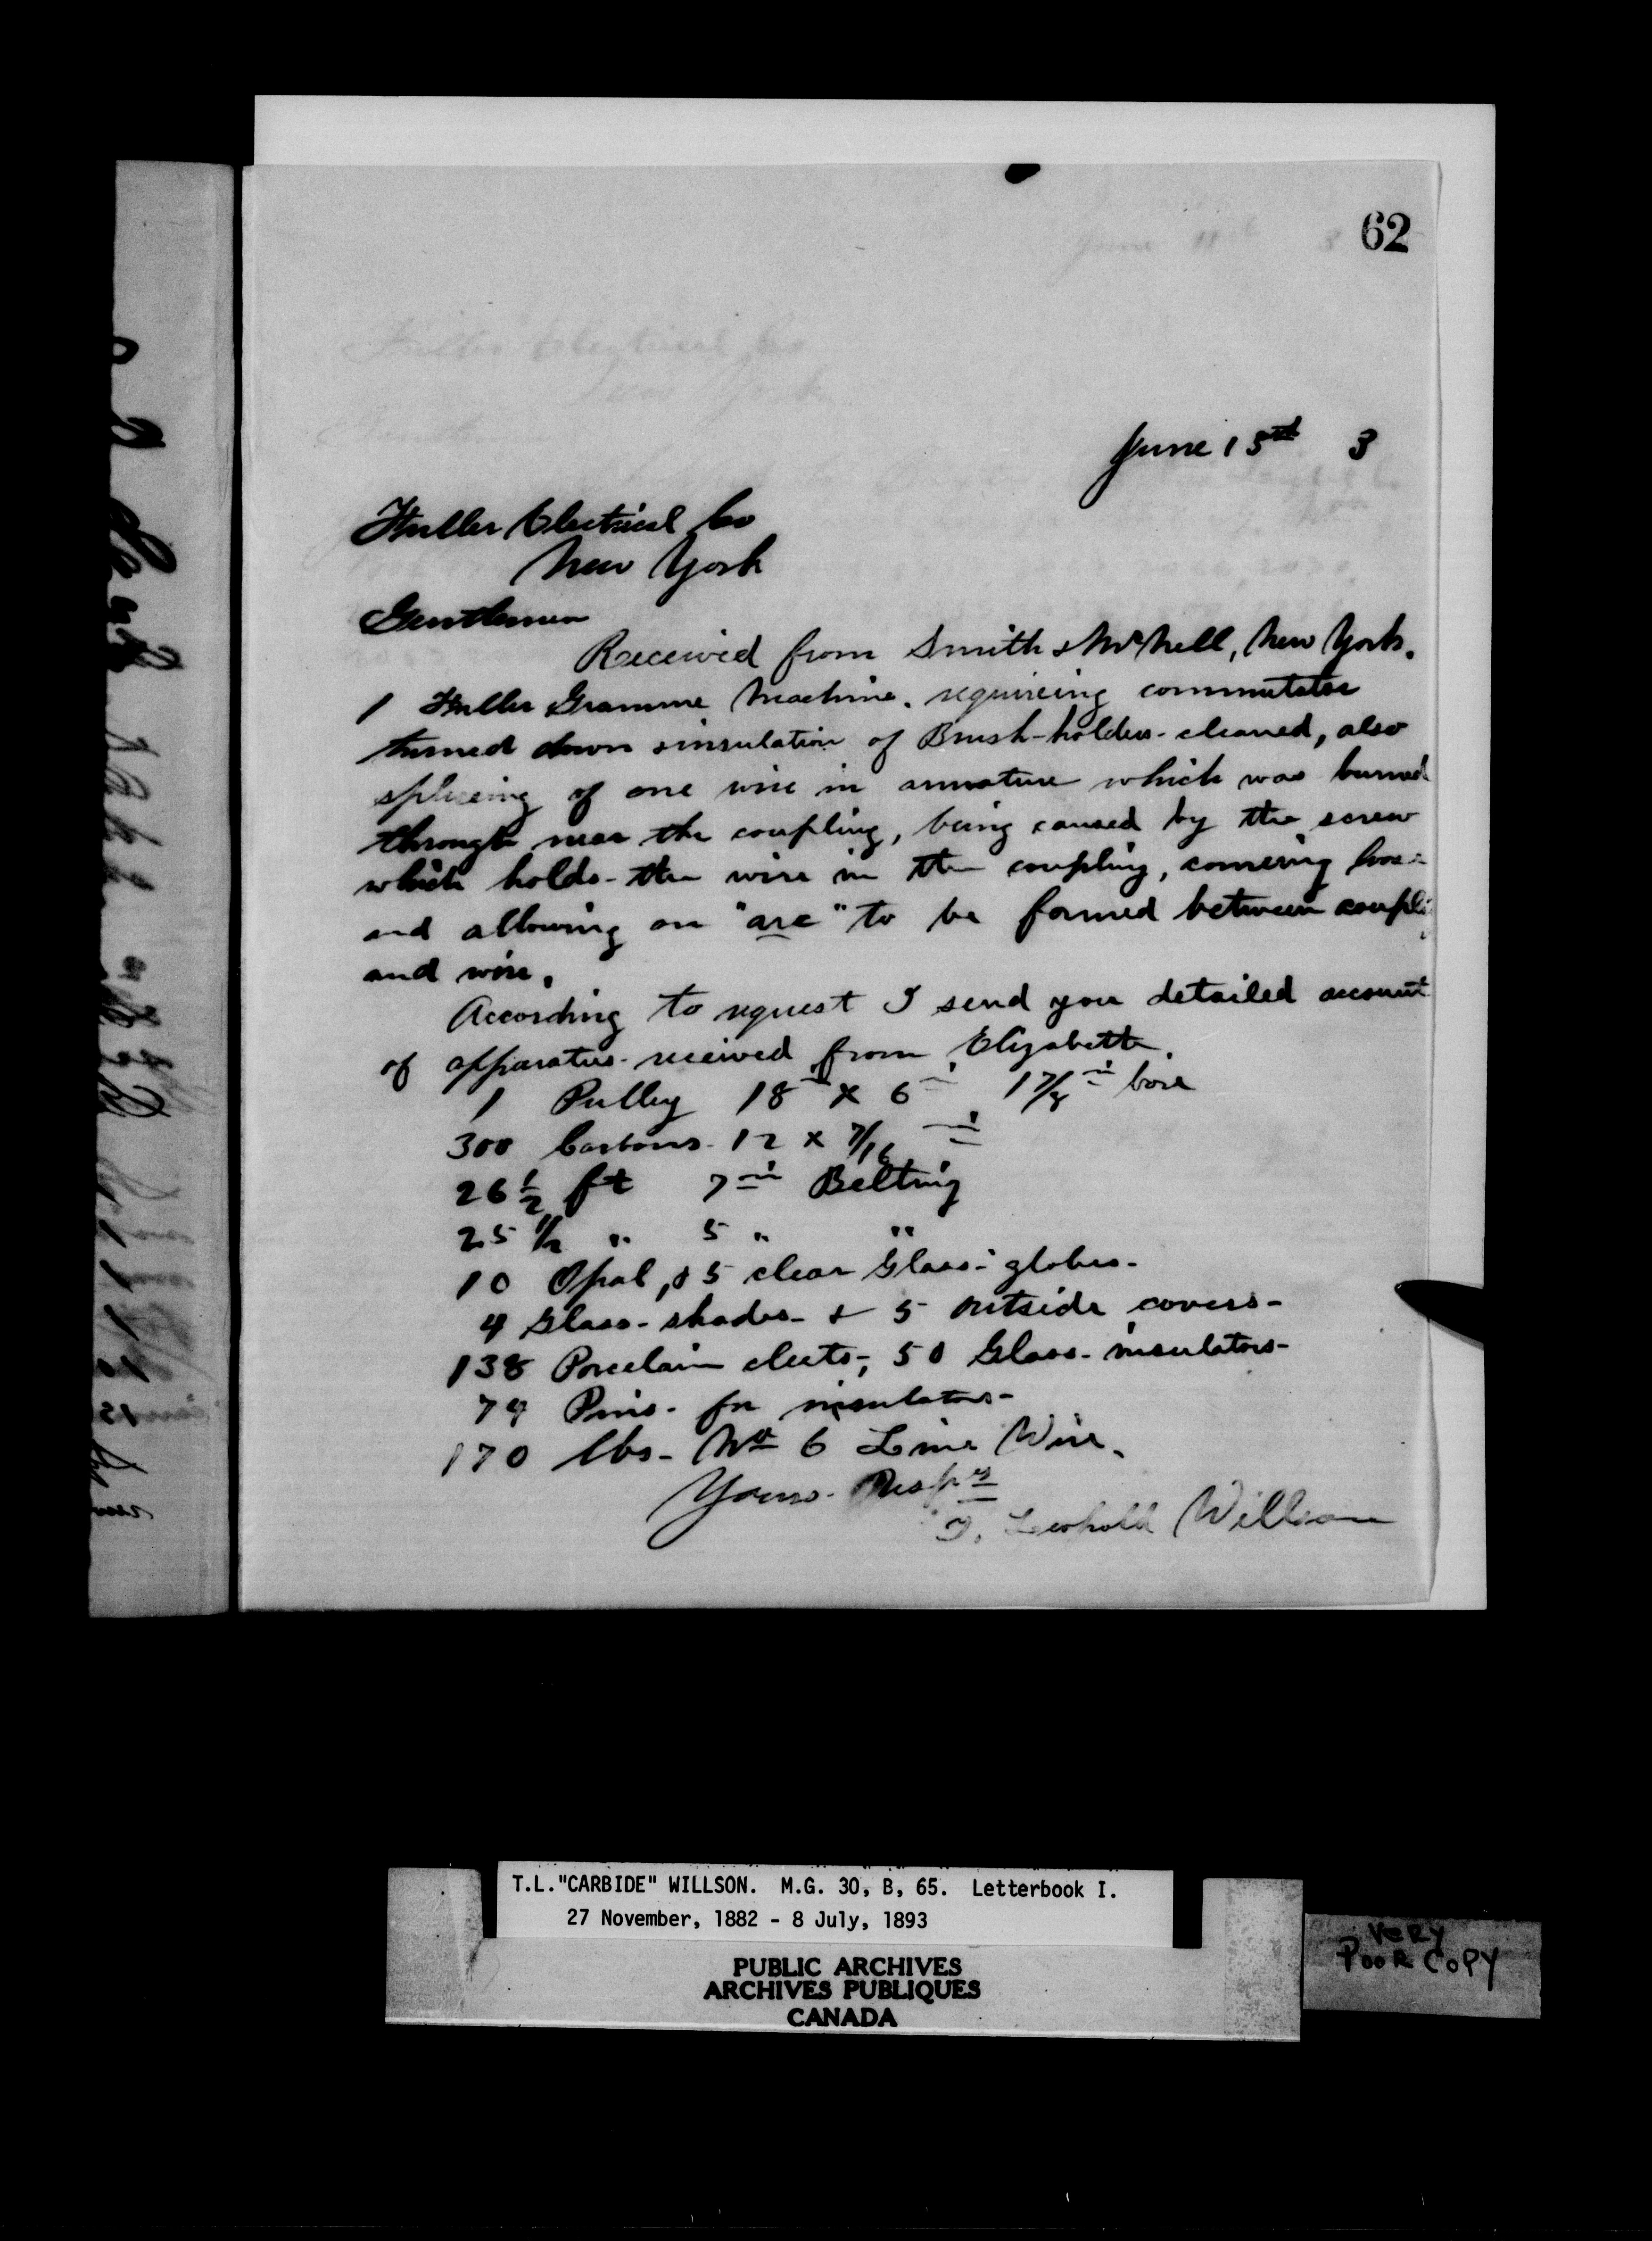 62
June 15th 3
Fuller Electrical Co
New York
Gentlemen
Received from Smith & McNell, New York.
1 Fuller Gramme Machine. requireing commutator
turned down & insulation of Brush-holders cleaned, also
spliceing of one wire in armature which was burned
through near the coupling, being caused by the screw
which holds the wire in the coupling, comeing loose
and allowing an "arc" to be formed between coupli
and wire.
According to request I send you detailed account
of apparatus received from Elizabeth.
1 Pulley 18 x 6 in 1 7/8 in bore
300 Carbons 12 x 7/16 in
26 1/2 ft 7 in Belting
25 1/2 " 5 " "
10 Opal, & 5 clear Glass globes
4 Glass shades & 5 outside covers
138 Porcelain cleets, 50 Glass insulators
74 Pins for insulators
170 lbs No 6 Line Wire.
Yours Respy
T. Leopold Willson
T.L."CARBIDE" WILLSON. M.G. 30, B, 65. Letterbook I.
27 November, 1882 - 8 July, 1893
PUBLIC ARCHIVES
ARCHIVES PUBLIQUES
CANADA
VERY
POOR COPY